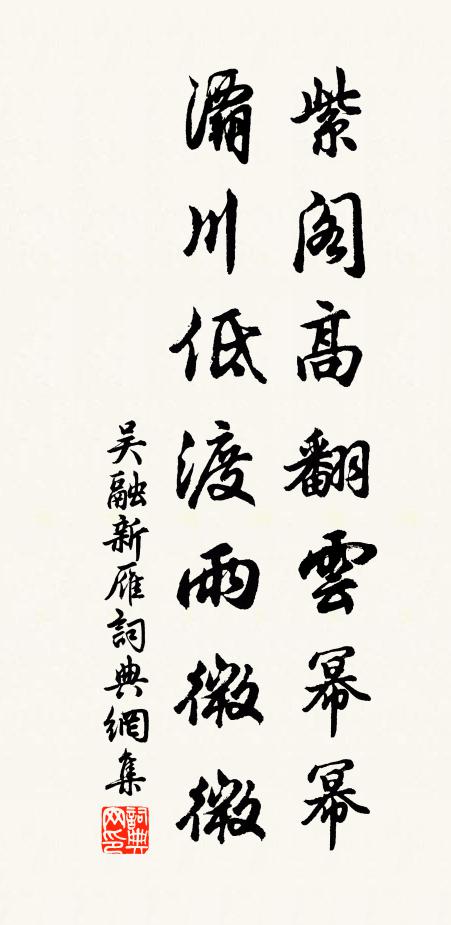 紫阁高翻雲幂幂
灞川低渡雨微微
吴融新雁詞典網集
詞典网印